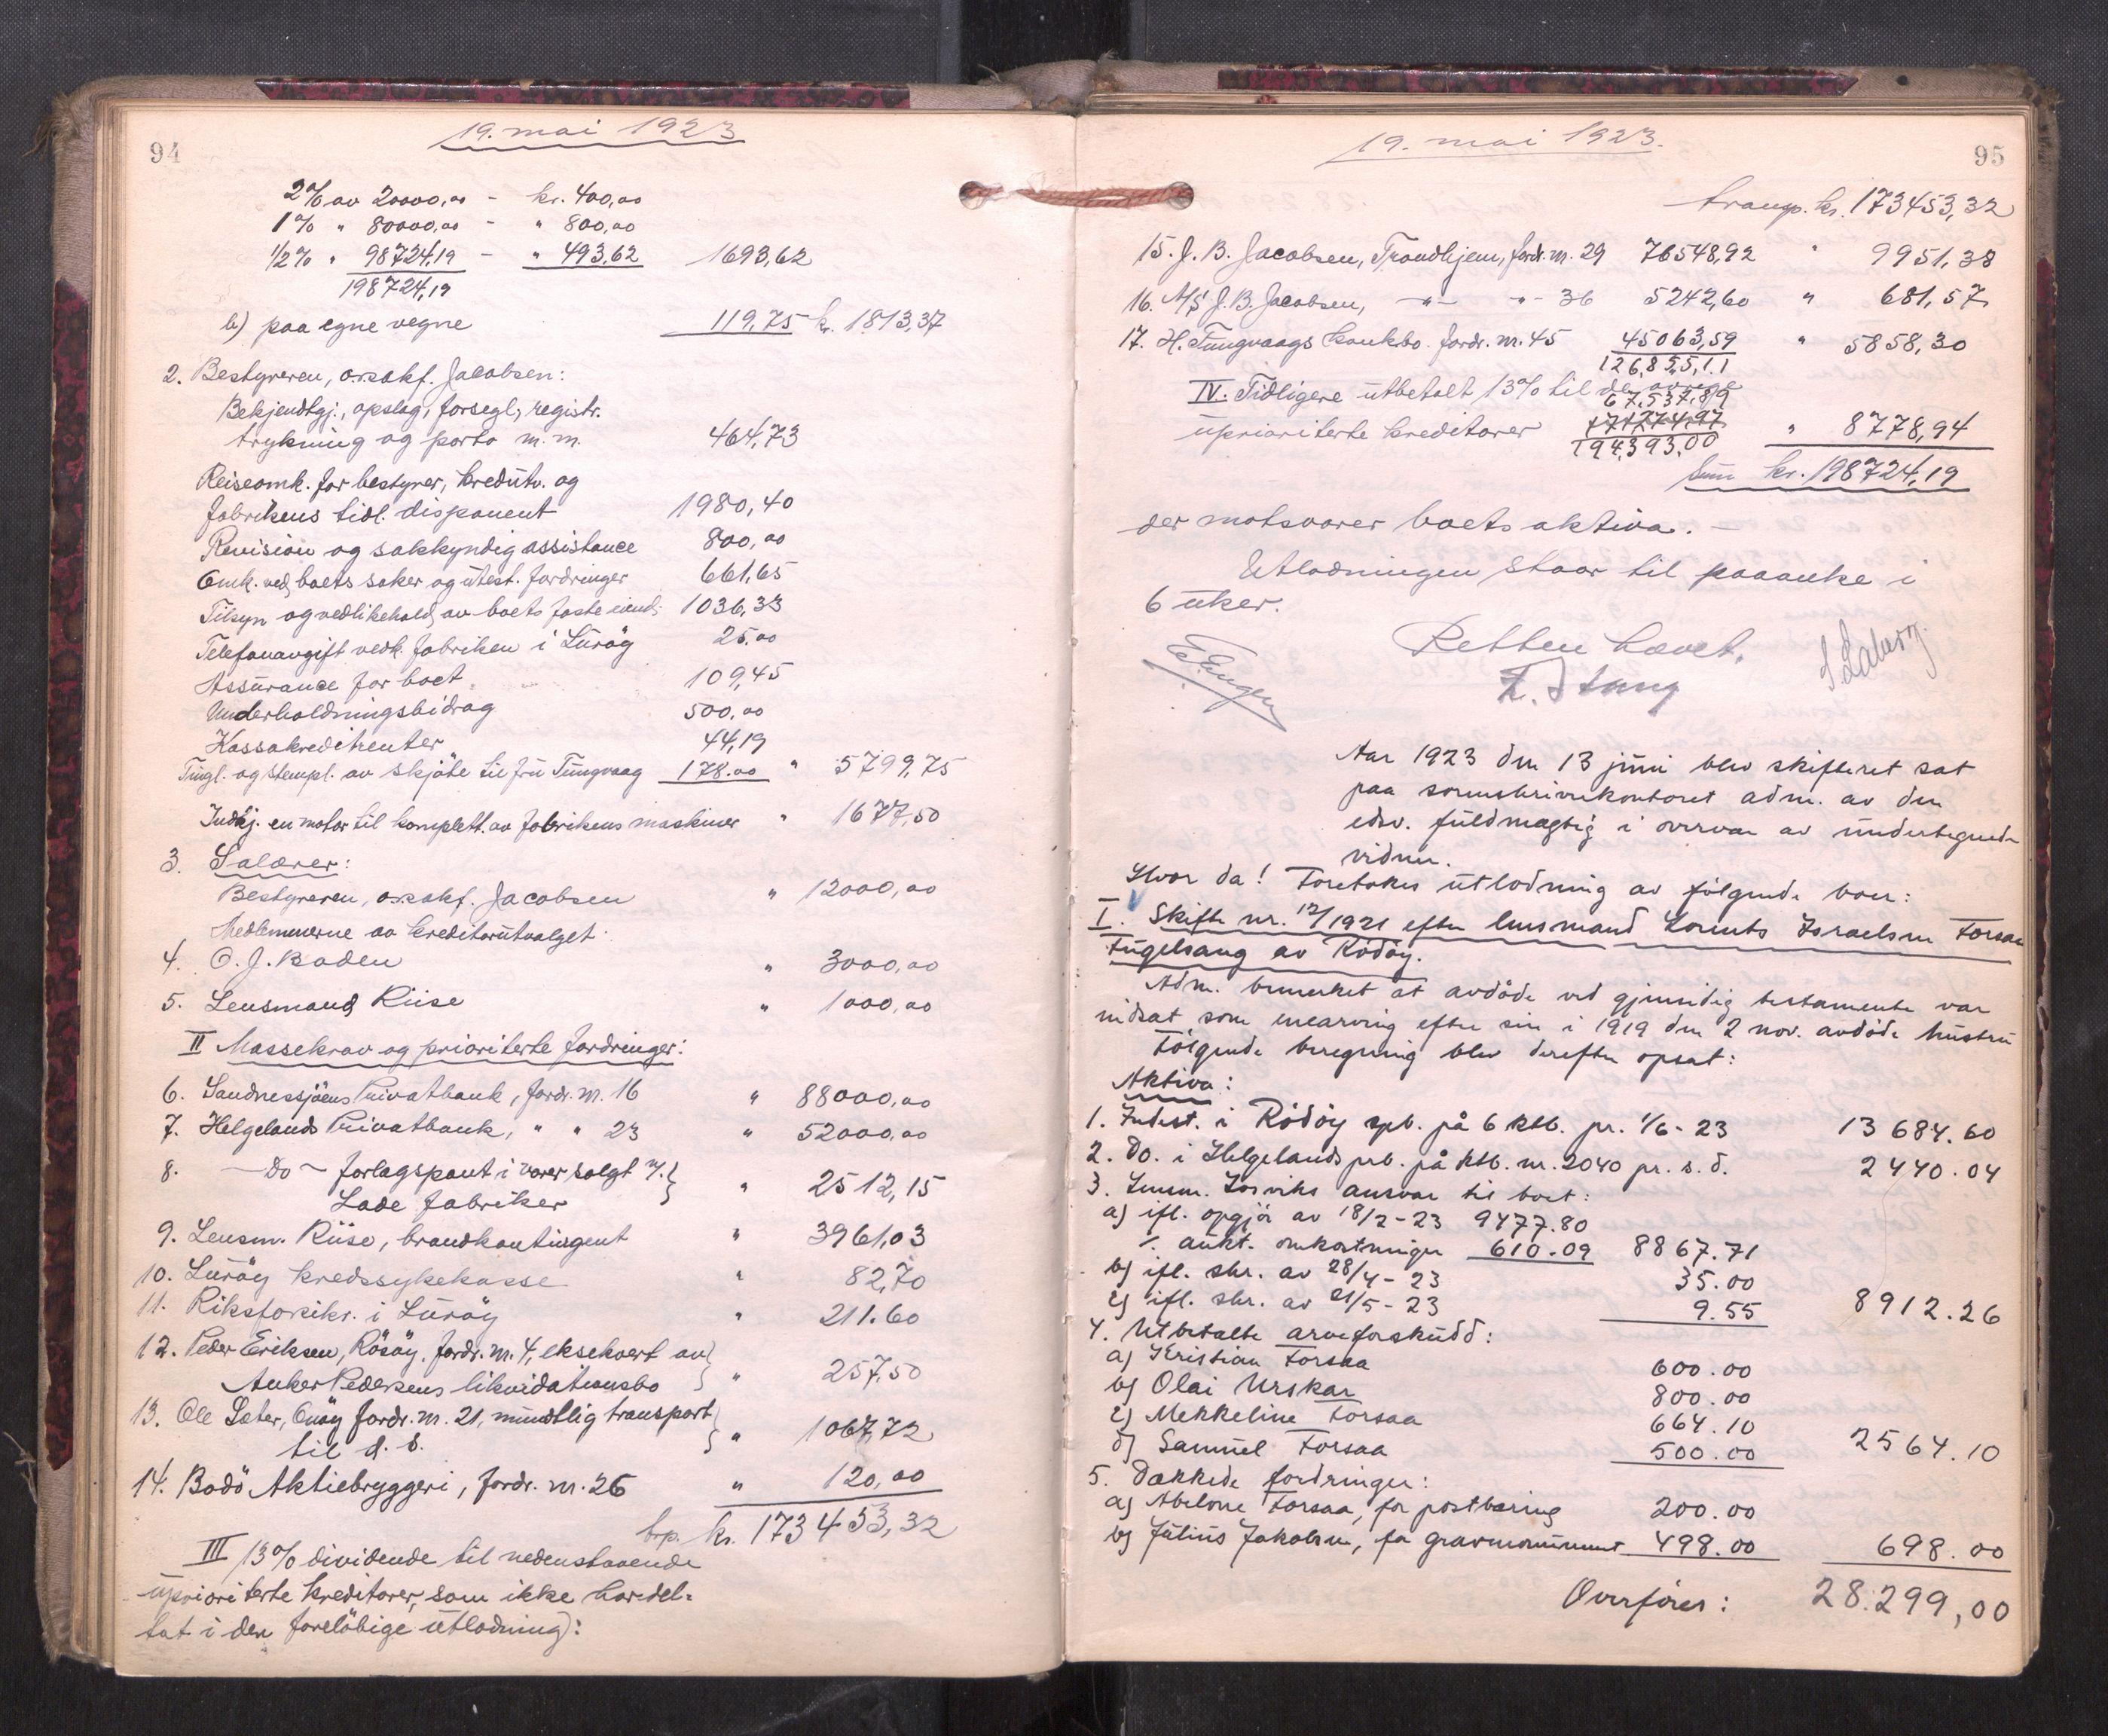 94
19. mai 1923
2% av 20000,00 - kr. 400,00
1% " 80000,00 - " 800,00
1/2% " 98724,19 - " 493,62 1693,62
198724,19
b) paa egne vegne 119,75 kr. 1813,37
2. Bestyreren, o.r.sakf. Jacobsen:
Bekjendtgj., opslag, forsegl, registr.
trykning og porto m.m. 464,73
Reiseomk. for bestyrer, kredutv. og
fabrikens tidl. disponent 1980,40
Revision og sakkyndig assistance 800,00
Omk. ved boets saker og utest. fordringer 661,65
Tilsyn og vedlikehold av boets faste eiend. 1036,33
Telefonavgift vedk. fabriken i Luröy 25.00
Assurance for boet 109,45
Underholdningsbidrag 500,00
Kassakreditrenter 44,19
Tingl. og stempl. av skjöte til fru Tungvaag 178.00 " 5799,75
Indkj. en motor til komplett. av fabrikens maskiner " 1677,50
3. Salærer:
Bestyreren, o.r.sakf. Jacobsen " 12000,00
Medlemmerne av kreditorutvalget:
4. O. J. Baden " 3000,00
5. Lensmand Riise " 1000,00
II Massekrav og prioriterte fordringer:
6. Sandnessjöens Privatbank, fordr. nr. 16 " 88000,00
7. Helgelands Privatbank, " " 23 " 52000,00
8. — Do — forlagspant i varer solgt
Lade fabriker " 2512,15
9. Lensm. Riise, brandkontingent " 3961,03
10. Luröy kredssykekasse " 82,70
11. Riksforsikr. i Luröy " 211.60
12. Peder Eriksen, Rösöy, fordr. nr. 4, eksekvert av
Anker Pedersens likvidationsbo " 257,50
13. Ole Sæter, Onöy fordr. nr. 21, mundtlig transport
til d. s. " 1067,72
14. Bodö Aktiebryggeri, fordr. nr. 26 " 120,00
trp. kr. 173453,32
III 13% dividende til nedenstaaende
uprioriterte kreditorer, som ikke har del-
tat i den foreløbige utlodning):
95
19. mai 1923.
transp. kr. 173453,32
15. J. B. Jacobsen, Trondhjem, fordr. nr. 29 76548,92 " 9951,38
16. M/S J. B. Jacobsen, —"— "- 36 5242,60 " 681,57
17. H. Tungvaags konkbo. fordr. nr. 45 45063,59 " 5858,30
126,855,11
IV. Tidligere utbetalt 13% til de øvrige
67,537,89
uprioriterte kreditorer " 8778,94
194,393,00
Sum kr. 198724,19
der motsvarer boets aktiva. —
Utlodningen staar til paaanke i
6 uker.
Retten hævet.
Z. Stang
Aar 1923 den 13 juni blev skifteret sat
paa sorenskriverkontoret adm. av den
edsv. fuldmægtig i overvær av undertegnede
vidner.
Hvor da! Foretokes utlodning av følgende boer:
I. Skifte nr. 12/1921 efter lensmand Lorents Israelsen Forsaa
Fugelsang av Rödöy.
Adm. bemerket at avdöde ved gjensidig testamente var
indsat som enearving efter sin i 1919 den 2 nov. avdöde hustru
Fölgende beregning blev derefter opsat:
Aktiva:
1. Indest. i Rödöy spb. på 6 ktb. pr. 1/6-23 13 684.60
2. Do. i Helgelands prb. på ktb. nr. 2040 pr. s. d. 2440.04
3. Lensm. Lorviks ansvar til boet:
a) ifl. opgjör av 18/2-23 9477.80
÷ aukt. omkostninger 610.09 8867.71
b) ifl. skr. av 28/4-23 35.00
c) ifl. skr. av 21/5-23 9.55 8912.26
4. Utbetalte arveforskudd:
a) Kristian Forsaa 600.00
b) Olai Urskar 800.00
c) Mekkeline Forsaa 664.10
d) Samuel Forsaa 500.00 2564.10
5. Dækkede fordringer:
a) Abelone Forsaa, for postbæring 200.00
b) Julius Jakobsen, for gravmonument 498.00 698.00
Overføres: 28.299,00